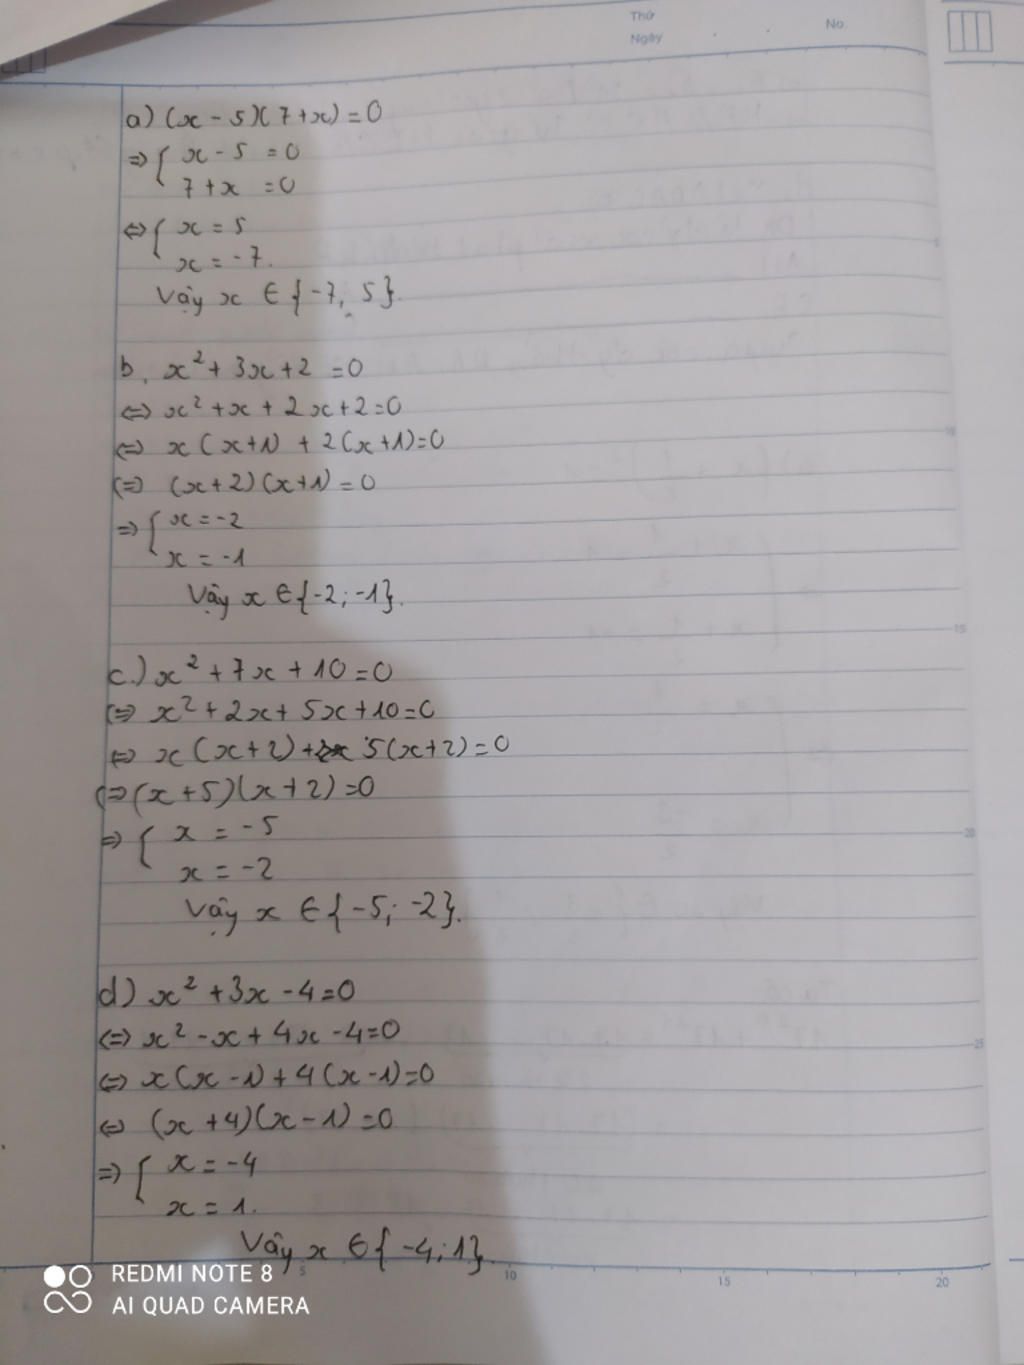 Thứ
Ngày
No.
a) (x - 5)(7+x) = 0
⇒ { x - 5 = 0
7 + x = 0
⇔ { x = 5
x = -7.
Vậy x ∈ {-7; 5}.
b, x² + 3x + 2 = 0
⇔ x² + x + 2x + 2 = 0
⇔ x (x+1) + 2(x+1) = 0
⇔ (x+2)(x+1) = 0
⇒ { x = -2
x = -1
Vậy x ∈ {-2; -1}.
c.) x² + 7x + 10 = 0
⇔ x² + 2x + 5x + 10 = 0
⇔ x (x+2) + 5(x+2) = 0
⇔ (x+5)(x+2) = 0
⇒ { x = -5
x = -2
Vậy x ∈ {-5; -2}.
d) x² + 3x - 4 = 0
⇔ x² - x + 4x - 4 = 0
⇔ x(x-1) + 4(x-1) = 0
⇔ (x+4)(x-1) = 0
⇒ { x = -4
x = 1.
Vậy x ∈ {-4; 1}.
5 10 15 20
REDMI NOTE 8
AI QUAD CAMERA